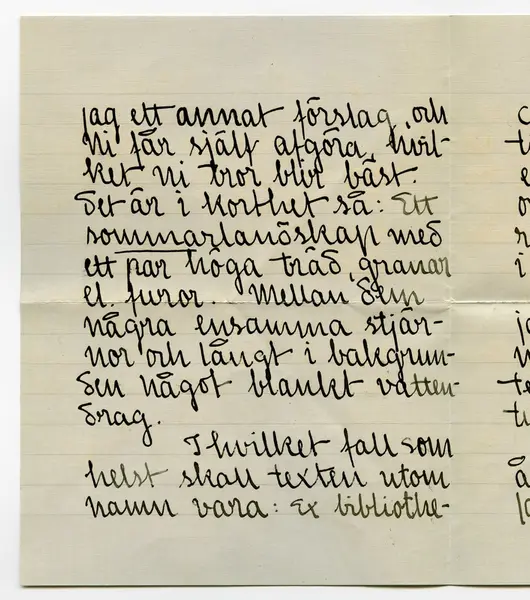 jag ett annat förslag, och
Ni får själf afgöra, hvil-
ket Ni tror blir bäst.
Det är i korthet så: Ett
sommarlandskap med
ett par höga träd, granar
el. furor. Mellan dem
några ensamma stjär-
nor och långt i bakgrun-
den något blankt vatten-
drag.
I hvilket fall som
helst skall texten utom
namn vara: Ex bibliothe-